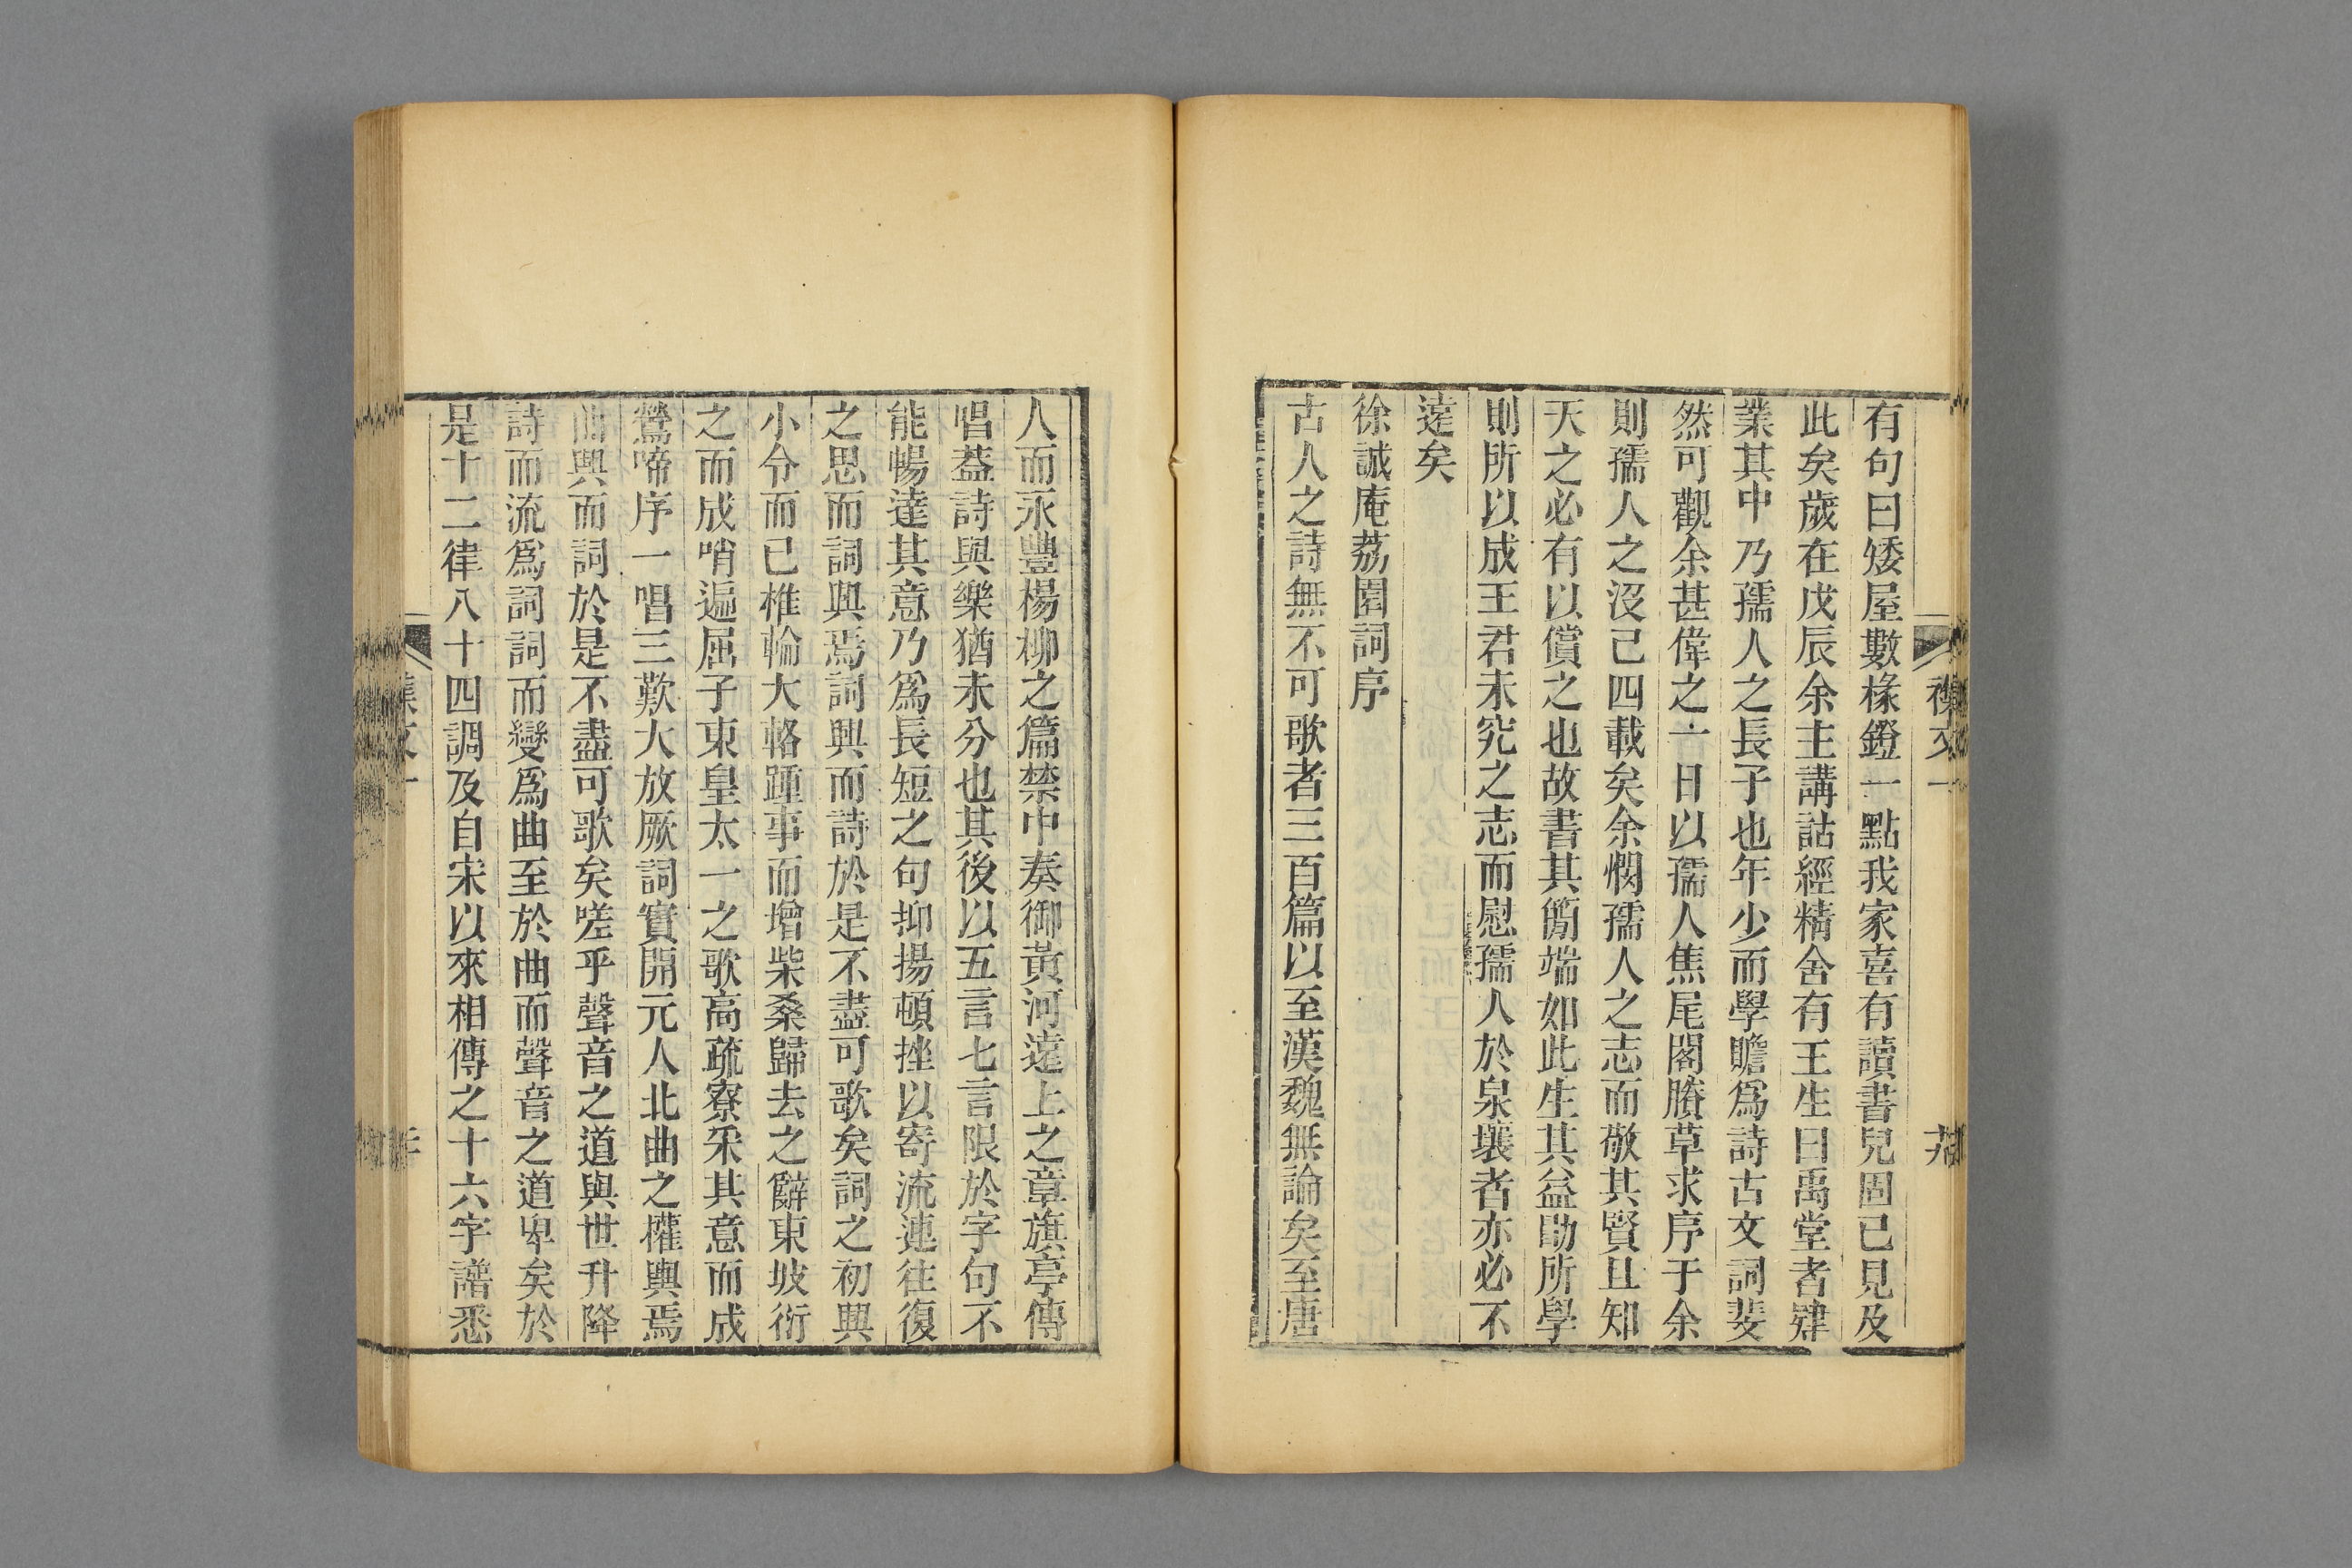 襍文一
有句曰矮屋數椽鐙一點我家喜有讀書兒固已見及
此矣歲在戊辰余主講詁經精舍有王生曰禹堂者肄
業其中乃孺人之長子也年少而學贍爲詩古文詞斐
然可觀余甚偉之一日以孺人焦尾閣賸草求序于余
則孺人之沒已四載矣余憫孺人之志而敬其賢且知
天之必有以償之也故書其簡端如此生其益勖所學
則所以成王君未究之志而慰孺人於泉壤者亦必不
遠矣
徐誠庵荔園詞序
古人之詩無不可歌者三百篇以至漢魏無論矣至唐
人而永豐楊柳之篇禁中奏御黃河遠上之章旗亭傳
唱蓋詩與樂猶未分也其後以五言七言限於字句不
能暢達其意乃爲長短之句抑揚頓挫以寄流連往復
之思而詞興焉詞興而詩於是不盡可歌矣詞之初興
小令而已椎輪大輅踵事而增柴桑歸去之辭東坡衍
之而成哨遍屈子東皇太一之歌高疏寮采其意而成
鶯啼序一唱三歎大放厥詞實開元人北曲之權輿焉
曲興而詞於是不盡可歌矣嗟乎聲音之道與世升降
詩而流爲詞詞而變爲曲至於曲而聲音之道卑矣於
是十二律八十四調及自宋以來相傳之十六字譜悉